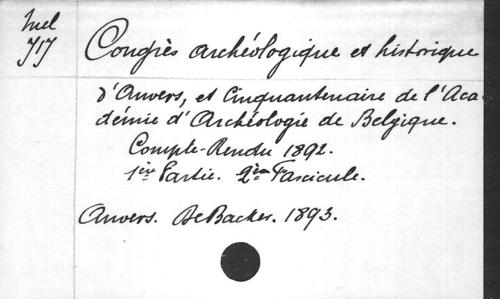 Mel
717
Congrès archéologique et historique
d'Anvers, et Cinquantenaire de l'Aca-
démie d'Archéologie de Belgique.
Compte-Rendu 1892.
1ère Partie. 2me Fascicule.
Anvers. De Backer. 1893.